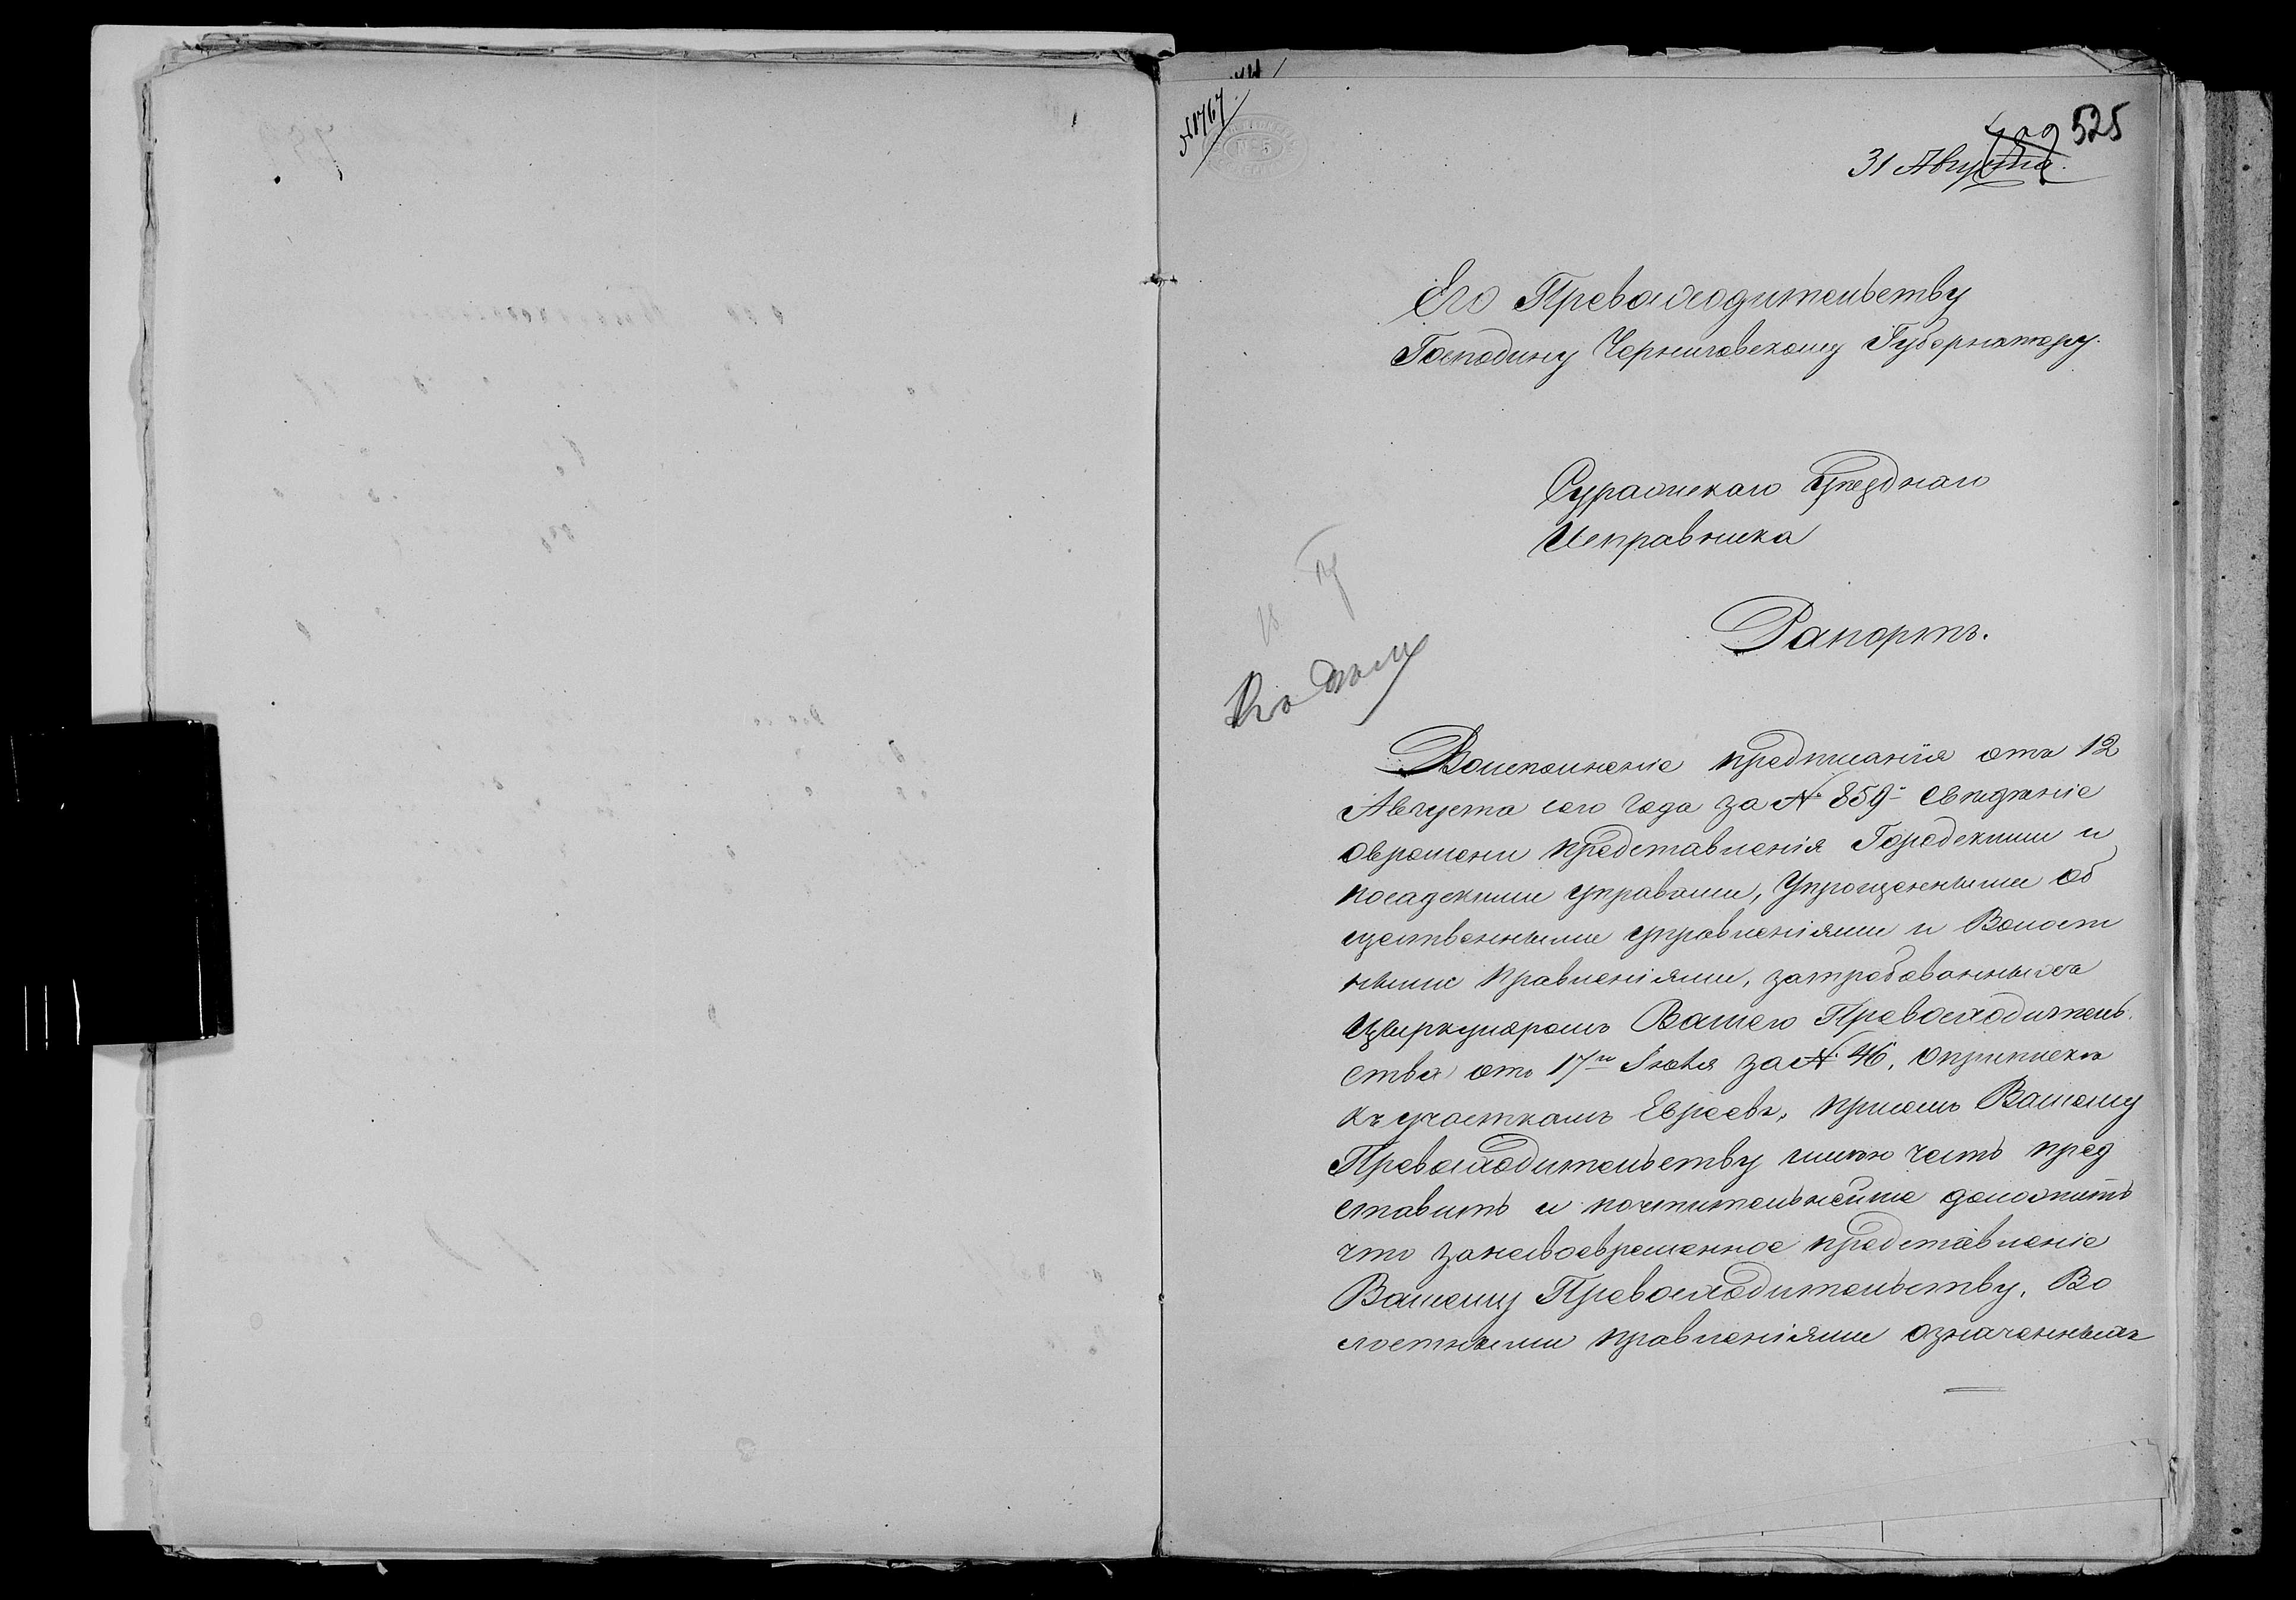 №1767.
509
525
31 Августа.
Его Превосходительству
Господину Черниговскому Губернатору.
Суражскаго Уѣзднаго
Исправника
Рапортъ.
Къ дѣлу
Воисполненіе предписанія отъ 12
Августа сего года за № 859 свѣденіе
овремени представленія Городскими и
посадскими управами, Упрощенными об
щественными управленіями и Волост
ными Правленіями, затребованныхъ
Циркуляромъ Вашего Превосходитель
ства отъ 17го Іюля за № 46, опрописке
къ участкамъ Евреевъ, присемъ Вашему
Превосходительству имѣю честь пред
ставить и почтительнейше доложить
что занесвоевременное представленіе
Вашему Превосходительству, Во
лостными правленіями означенныхъ